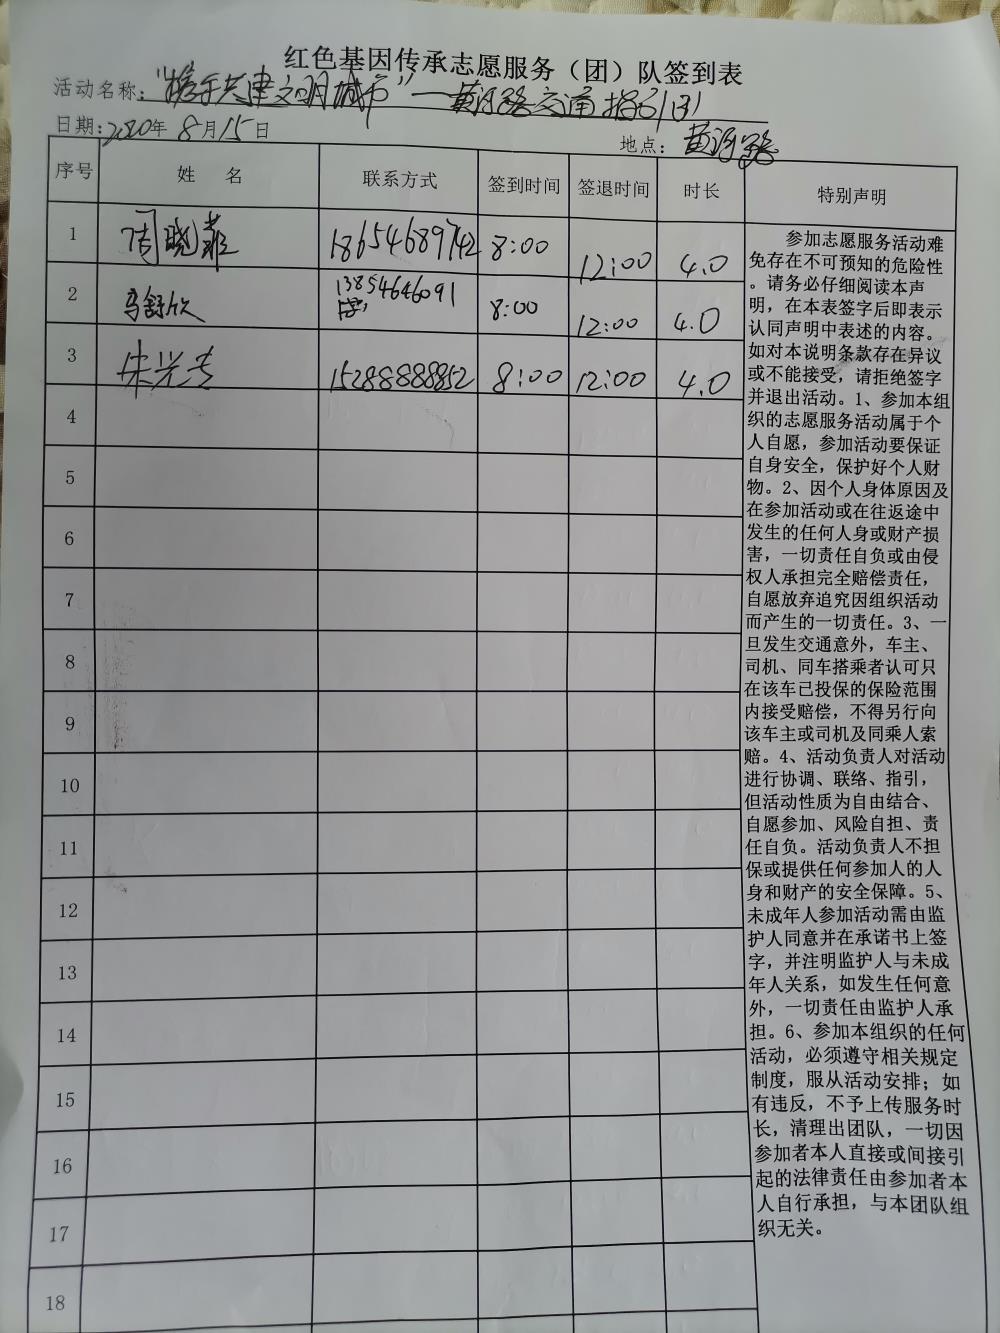 红色基因传承志愿服务（团）队签到表
活动名称："携手共建文明城市"—黄河路交通指引(3)
日期:2020年8月15日 地点：黄河路
序号 姓 名 联系方式 签到时间 签退时间 时长 特别声明
1 周晓菲 18654689742 8:00 12:00 4.0
2 马舒欣 13854646091 8:00 12:00 4.0
3 朱光专 15288888852 8:00 12:00 4.0
4
5
6
7
8
9
10
11
12
13
14
15
16
17
18
参加志愿服务活动难
免存在不可预知的危险性
。请务必仔细阅读本声
明，在本表签字后即表示
认同声明中表述的内容。
如对本说明条款存在异议
或不能接受，请拒绝签字
并退出活动。1、参加本组
织的志愿服务活动属于个
人自愿，参加活动要保证
自身安全，保护好个人财
物。2、因个人身体原因及
在参加活动或在往返途中
发生的任何人身或财产损
害，一切责任自负或由侵
权人承担完全赔偿责任，
自愿放弃追究因组织活动
而产生的一切责任。3、一
旦发生交通意外，车主、
司机、同车搭乘者认可只
在该车已投保的保险范围
内接受赔偿，不得另行向
该车主或司机及同乘人索
赔。4、活动负责人对活动
进行协调、联络、指引，
但活动性质为自由结合、
自愿参加、风险自担、责
任自负。活动负责人不担
保或提供任何参加人的人
身和财产的安全保障。5、
未成年人参加活动需由监
护人同意并在承诺书上签
字，并注明监护人与未成
年人关系，如发生任何意
外，一切责任由监护人承
担。6、参加本组织的任何
活动，必须遵守相关规定
制度，服从活动安排；如
有违反，不予上传服务时
长，清理出团队，一切因
参加者本人直接或间接引
起的法律责任由参加者本
人自行承担，与本团队组
织无关。